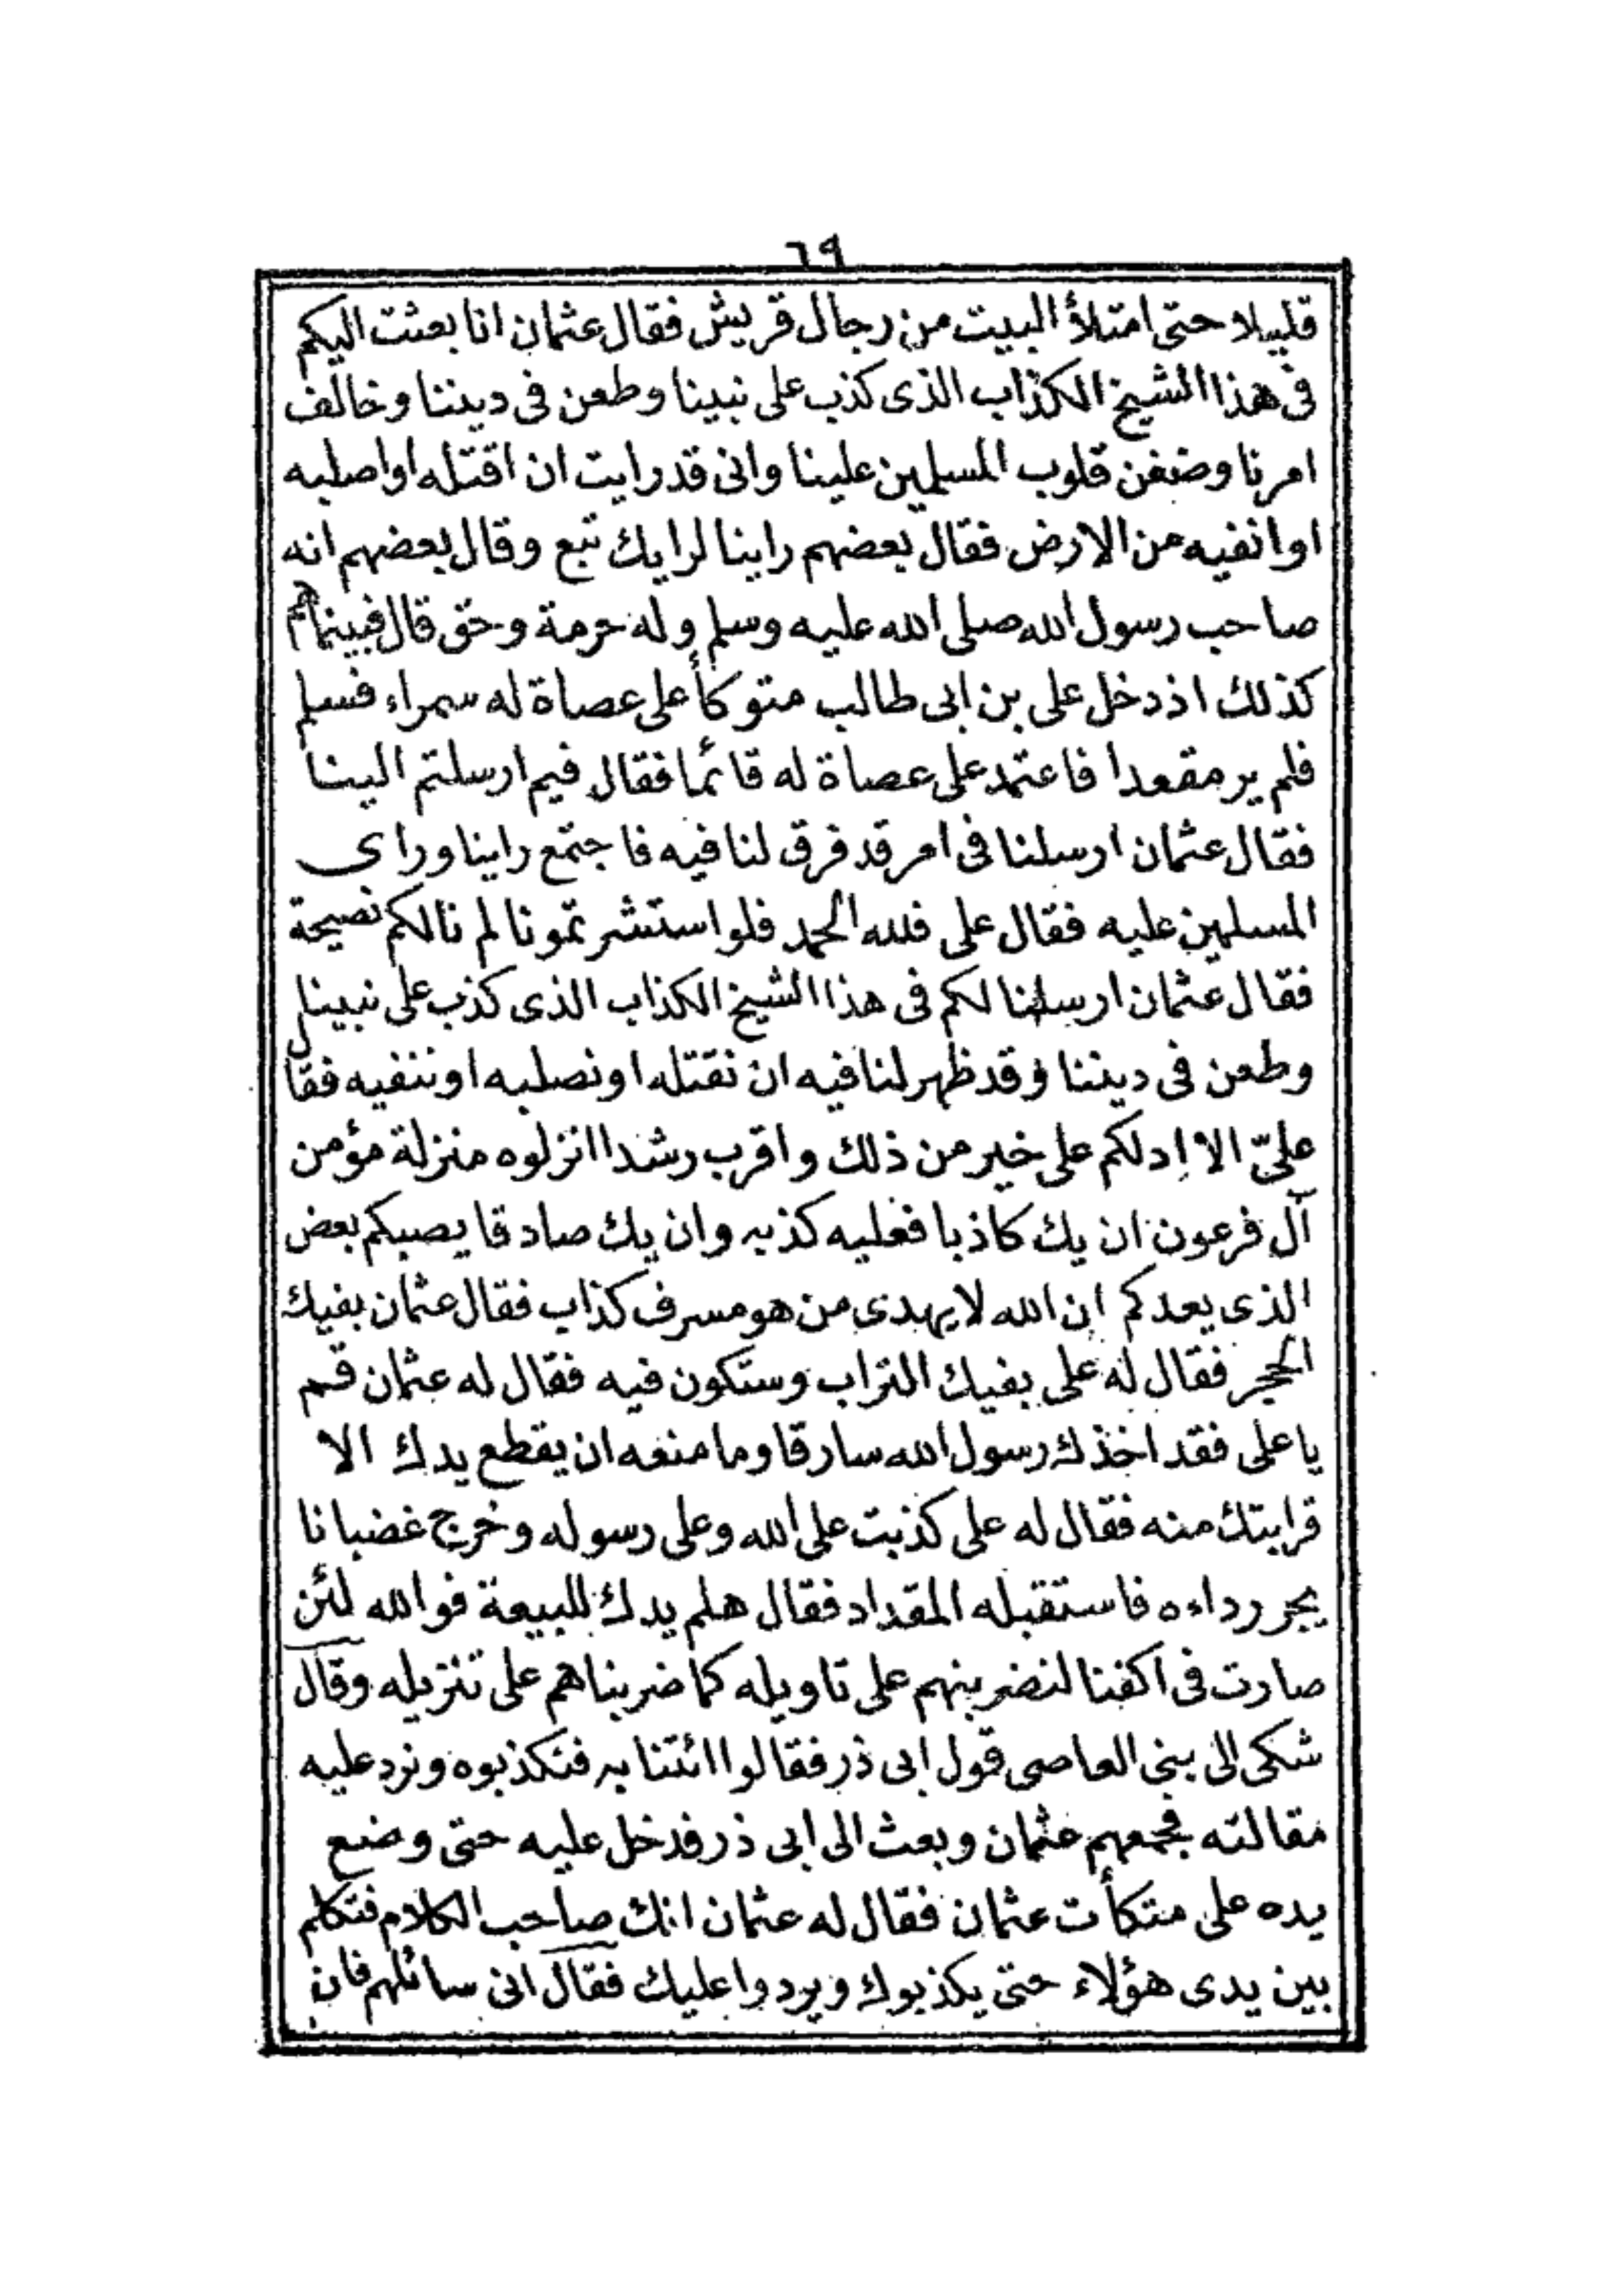 ٦٩
قليلا حتى امتلأ البيت من رجال قريش فقال عثمان انا بعثت اليكم
فى هذا الشيخ الكذاب الذى كذب على نبينا وطعن فى ديننا وخالف
امرنا وضغن قلوب المسلمين علينا وانى قد رايت ان اقتله او اصلبه
او انفيه من الارض فقال بعضهم راينا لرايك تبع وقال بعضهم انه
صاحب رسول الله صلى الله عليه وسلم وله حرمة وحق قال فبينما هم
كذلك اذ دخل على بن ابى طالب متوكأ على عصاة له سمراء فسلم
فلم ير مقعدا فاعتمد على عصاة له قائما فقال فيم ارسلتم الينا
فقال عثمان ارسلنا فى امر قد فرق لنا فيه فاجتمع راينا وراى
المسلمين عليه فقال على فلله الحمد فلو استشرتمونا لم نالكم نصيحة
فقال عثمان ارسلنا لكم فى هذا الشيخ الكذاب الذى كذب على نبينا
وطعن فى ديننا وقد ظهر لنا فيه ان نقتله او نصلبه او ننفيه فقال
علىّ الا ادلكم على خير من ذلك واقرب رشدا انزلوه منزلة مؤمن
آل فرعون ان يك كاذبا فعليه كذبه وان يك صادقا يصبكم بعض
الذى يعدكم ان الله لا يهدى من هو مسرف كذاب فقال عثمان بفيك
الحجر فقال له على بفيك التراب وستكون فيه فقال له عثمان قم
يا على فقد اخذك رسول الله سارقا وما منعه ان يقطع يدك الا
قرابتك منه فقال له على كذبت على الله وعلى رسوله وخرج غضبانا
يجر رداءه فاستقبله المقداد فقال هلم يدك للبيعة فوالله لئن
صارت فى اكفنا لنضربنهم على تاويله كما ضربناهم على تنزيله وقال
شكى الى بنى العاصى قول ابى ذر فقالوا ائتنا به فنكذبوه ونرد عليه
مقالته فجمعهم عثمان وبعث الى ابى ذر فدخل عليه حتى وضع
يده على متكأت عثمان فقال له عثمان انك صاحب الكلام فتكلم
بين يدى هؤلاء حتى يكذبوك ويردوا عليك فقال انى سائلهم فان